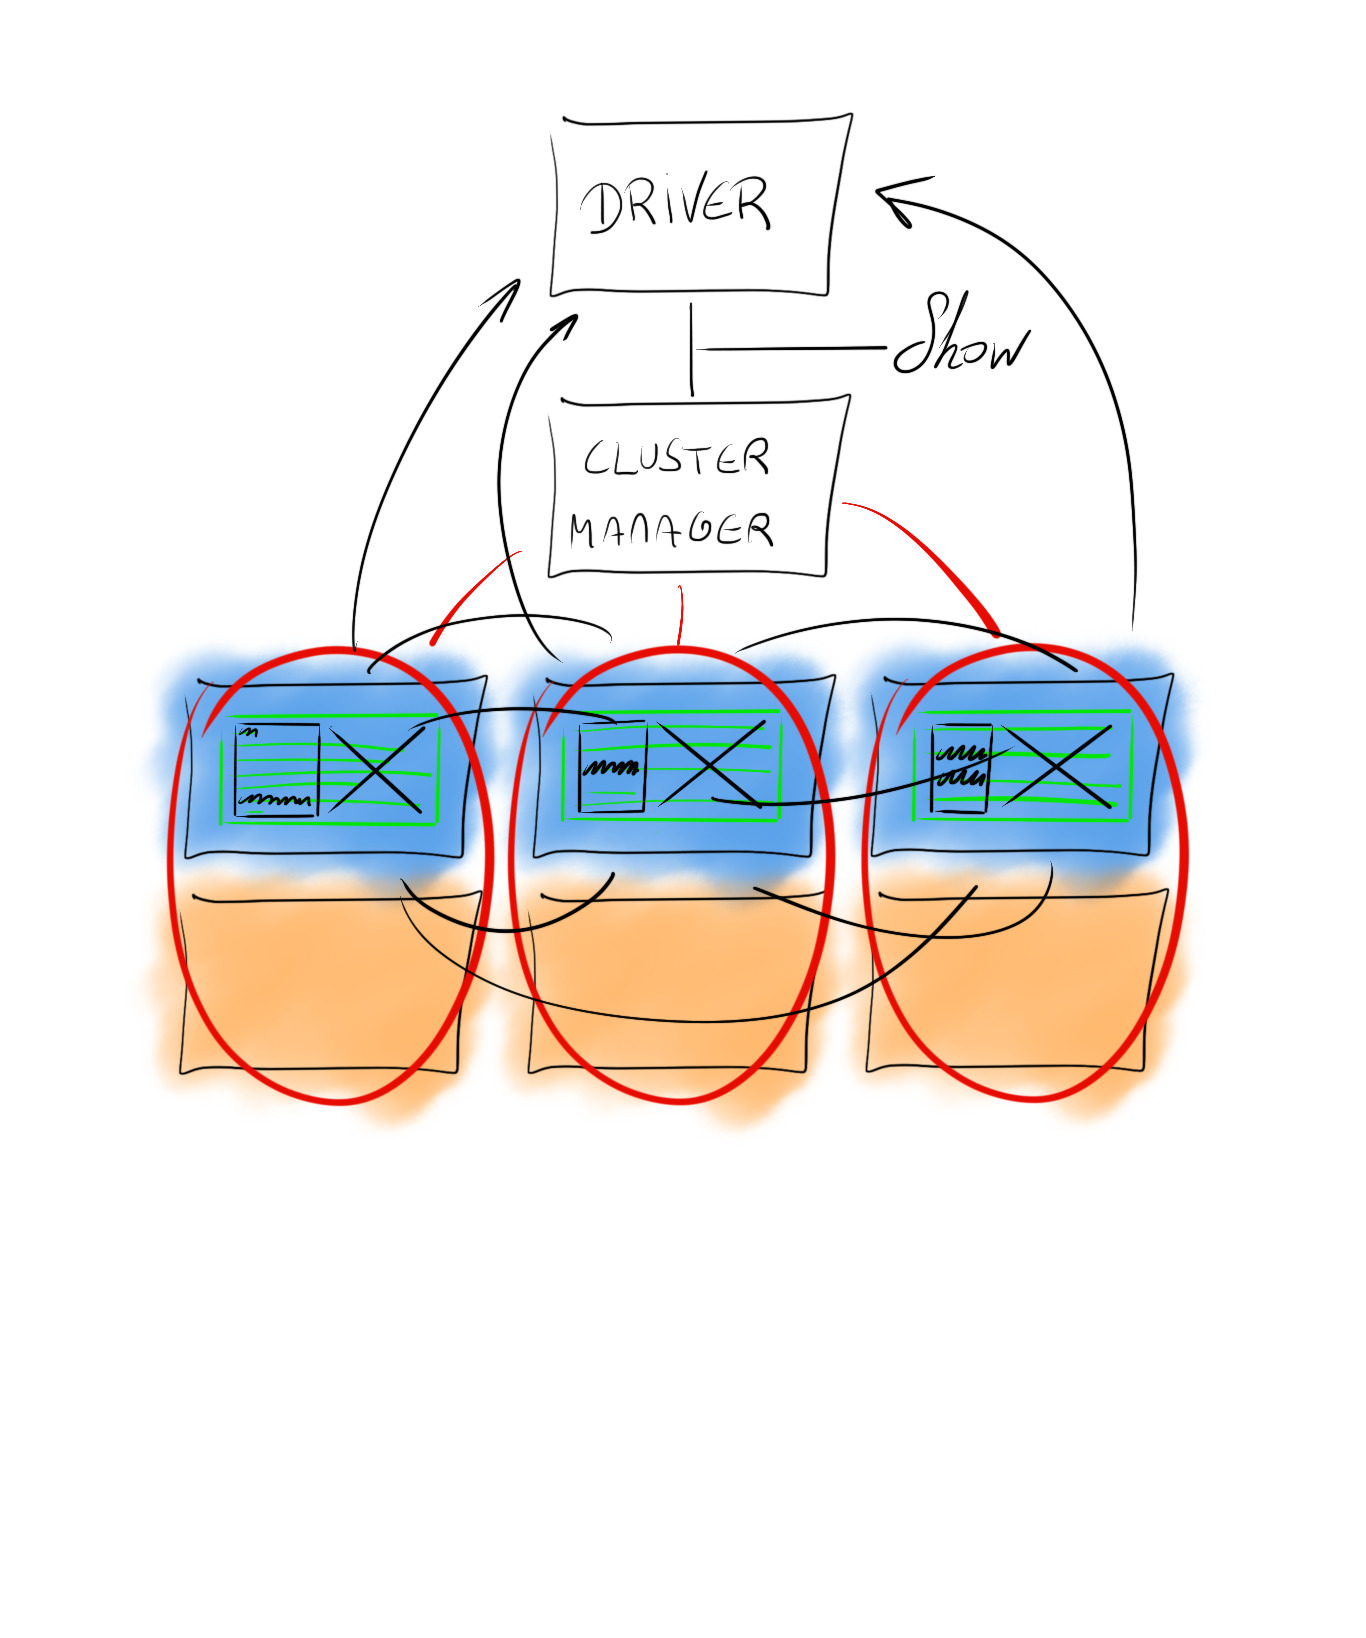 DRiVER
Show
CLUSTER
MANAGER